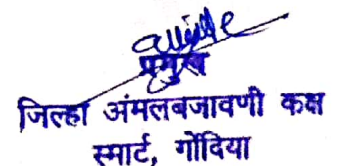 प्रमुख
जिल्हा अंमलबजावणी कक्ष
स्मार्ट, गोंदिया